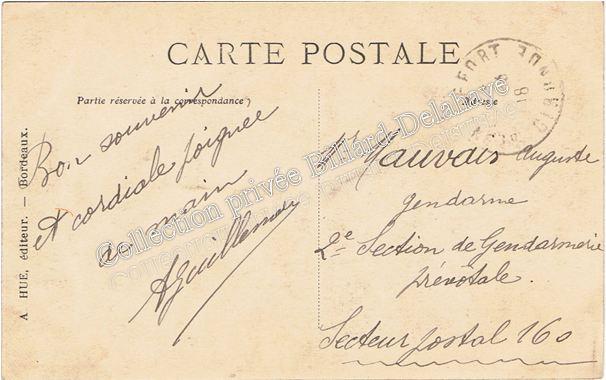 CARTE POSTALE
Partie réservée à la correspondance
Adresse
A HUE, éditeur. — Bordeaux.
Bon souvenir
et cordiale poignée
de main
AGuillemer
Mr Mauvais Auguste
Gendarme
2e Section de Gendarmerie
prévôtale.
Secteur postal 160
Collection privée Billard-Delahaye
GIRONDE
18